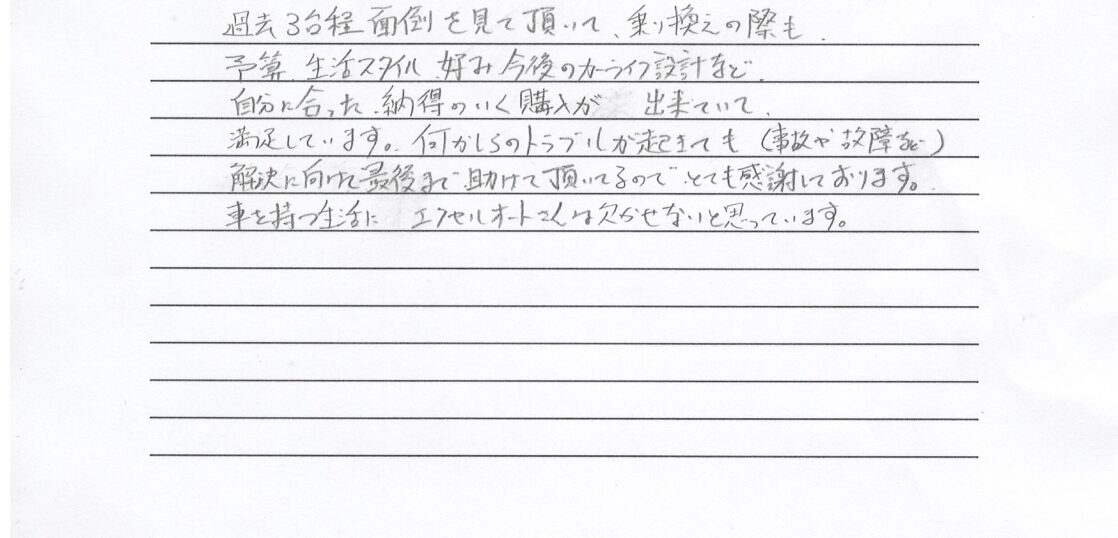 過去3台程面倒を見て頂いて、乗り換えの際も、
予算、生活スタイル、好み、今後のカーライフ設計など、
自分に合った、納得のいく購入が 出来ていて、
満足しています。何かしらのトラブルが起きても(事故や故障など)
解決に向けて最後まで助けて頂いてるので、とても感謝しております。
車を持つ生活に エクセルオートさんは欠かせないと思っています。